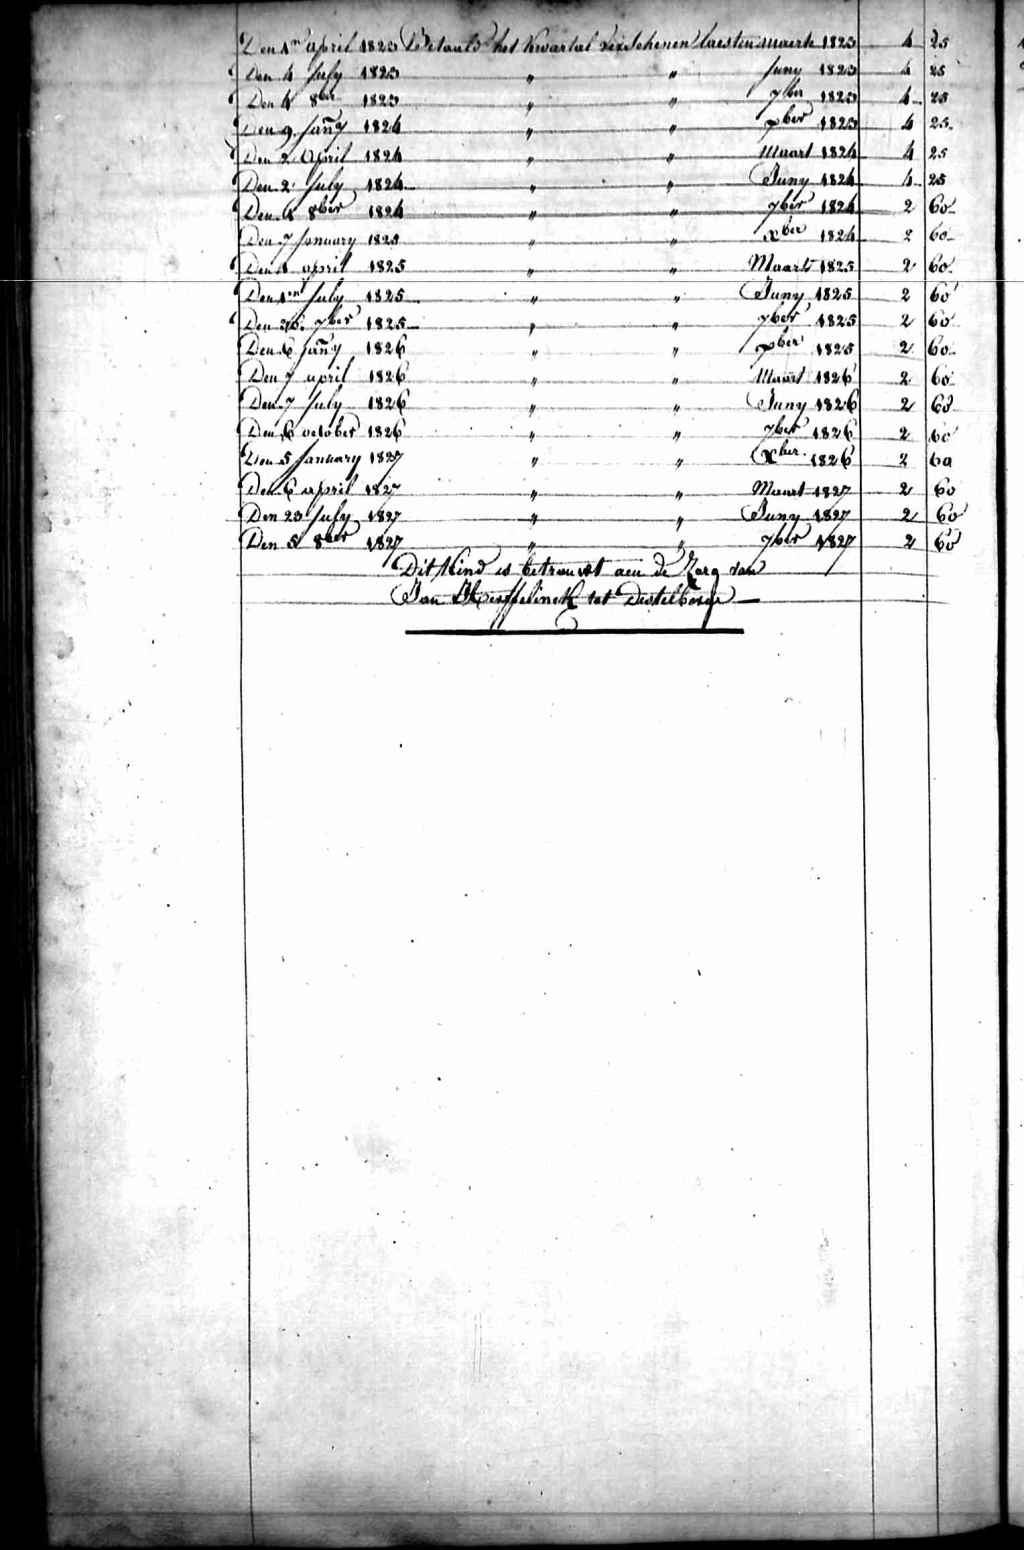 Den 1en april 1823 Betaald het Kwartal verschenen laesten maerte 1823 4 25
Den 4 July 1823 " " Juny 1823 4 25
Den 4 8ber 1823 " " 7ber 1823 4 25
Den 9 Jany 1824 " " Xber 1823 4 25
Den 2 April 1824 " " Maart 1824 4 25
Den 2 July 1824 " " Juny 1824 4 25
Den 8ber 1824 " " 7ber 1824 2 60
Den 7 January 1825 " " Xber 1824 2 60
Den april 1825 " " Maart 1825 2 60
Den 1en July 1825 " " Juny 1825 2 60
Den 26 7ber 1825 " " 7ber 1825 2 60
Den 6 Jany 1826 " " Xber 1825 2 60
Den 7 april 1826 " " Maart 1826 2 60
Den 7 July 1826 " " Juny 1826 2 60
Den 6 october 1826 " " 7ber 1826 2 60
Den 5 January 1827 " " Xber 1826 2 60
Den 6 april 1827 " " Maart 1827 2 60
Den 23 July 1827 " " Juny 1827 2 60
Den 5 8ber 1827 " " 7ber 1827 2 60
Dit Kind is betrouwt aen de Zorg van
Jan tot Destelberge